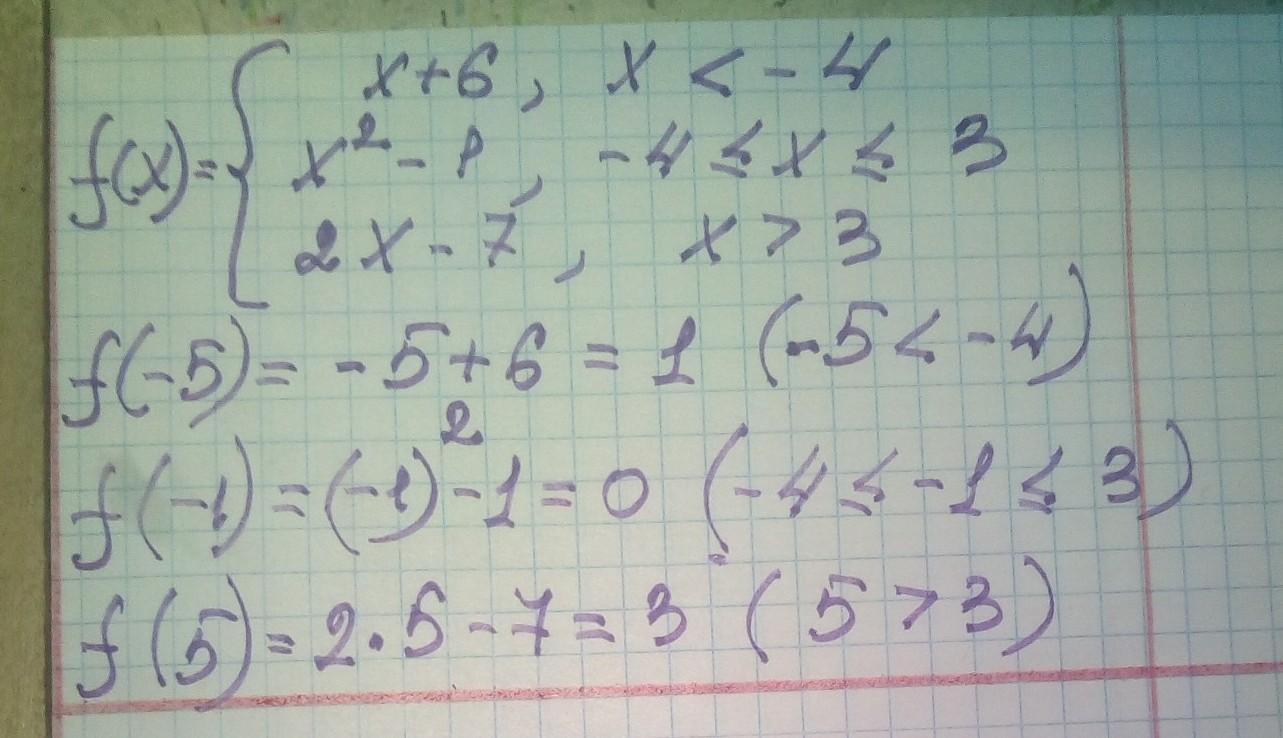 x+6, x < -4
f(x)= { x² - 1, -4 ≤ x ≤ 3
2x - 7, x > 3
f(-5)= -5+6 = 1 (-5 < -4)
f(-1)=(-1)²-1=0 (-4 ≤ -1 ≤ 3)
f(5)=2·5-7=3 (5 > 3)